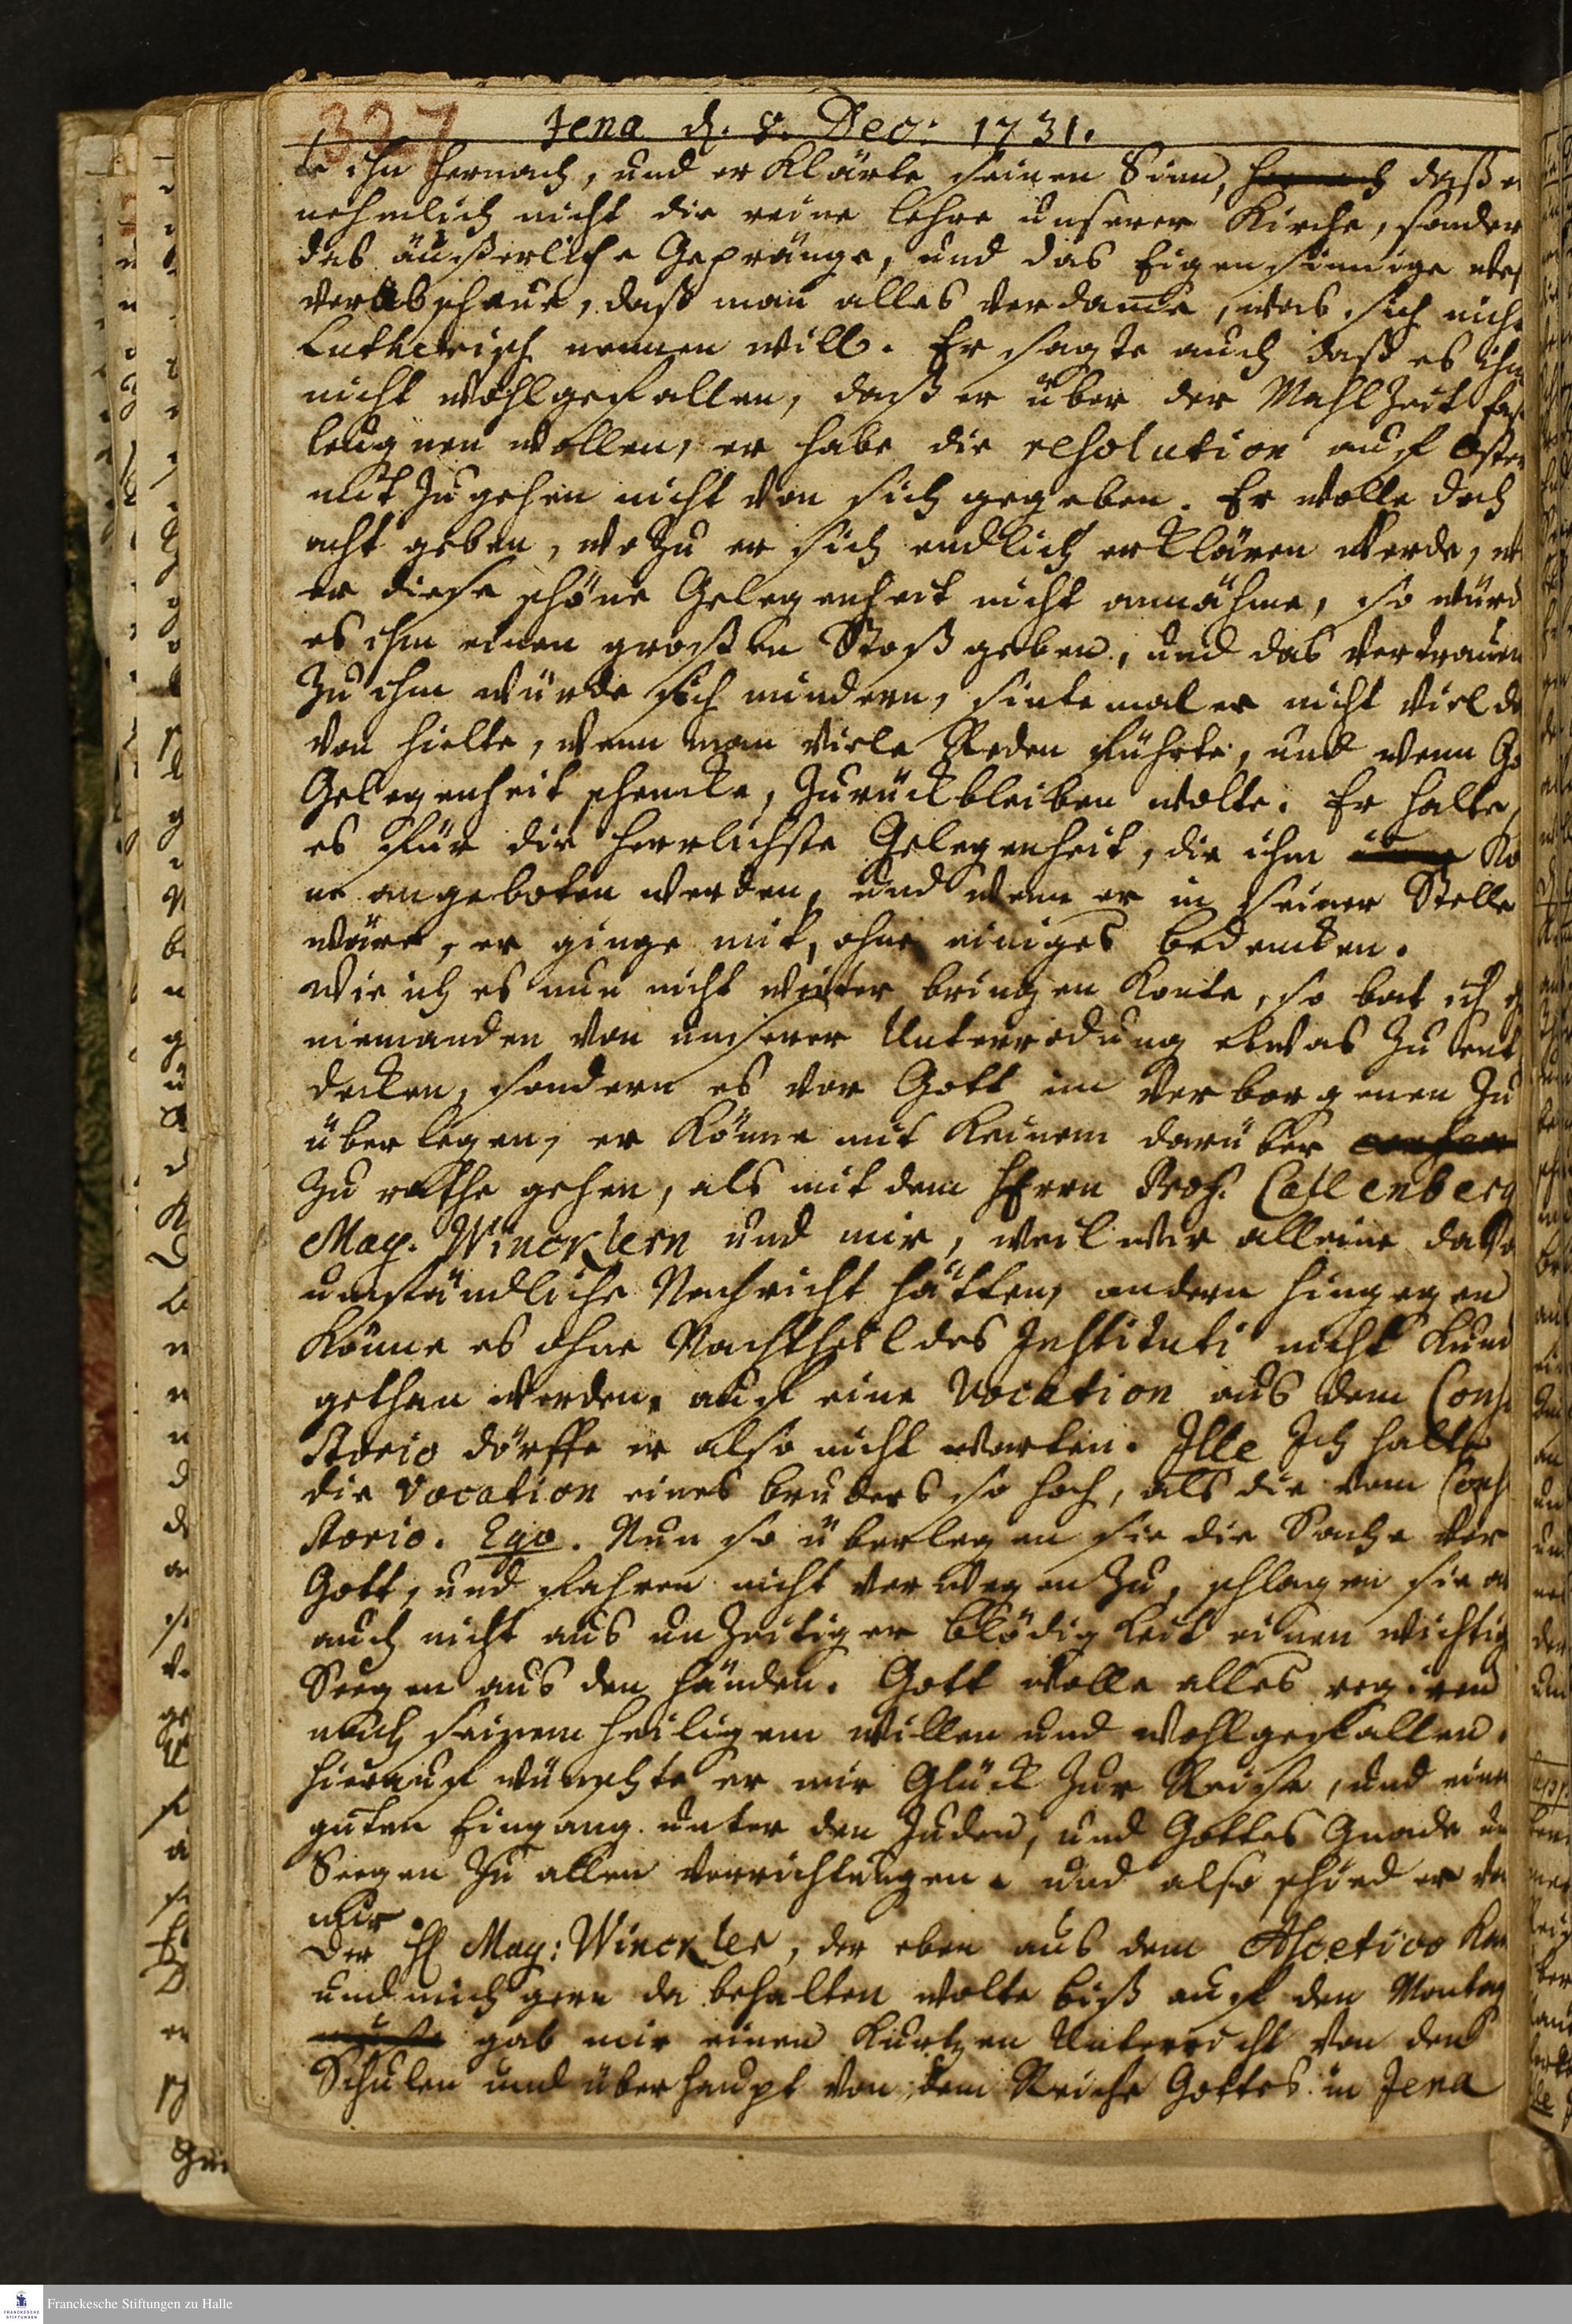 327 Jena d. 8. Dec: 1731.
te ihn hernach, und erklärte seinen Sinn, daß er
nehmlich nicht die reine Lehre unserer Kirche, sonder
das äußerliche Gepränge, und das Eigensinnige
verabscheue, daß man alles verdame, was sich nich
Lutherisch nennen will. Er sagte auch daß es ihm
nicht wohlgefallen, daß er über der Mahlzeit
leugnen wollen, er habe die resolution auf Oster
mit zu gehen nicht von sich gegeben. Er wolle doch
acht geben, wozu er sich endlich erklären werde,
er diese schöne Gelegenheit nicht annähme, so würd
es ihm einen großen Stoß geben, und das Vertrauen
zu ihm würde sich mindern, sintemal er nicht viel da
von hielte, wenn man viele Reden führte, und wenn Go
Gelegenheit schencke, zurückbleiben wolte. Er halte
es für die herrlichste Gelegenheit, die ihm kö
ne angeboten werden, und wenn er in seiner Stelle
wäre, er ginge mit, ohne einiges bedencken.
Wie ich es nun nicht weiter bringen konte, so bat ich
niemanden von unserer Unterredung etwas zu ent
decken, sondern es vor Gott im Verborgenen zu
überlegen, er könne mit keinem darüber
zu rathe gehen, als mit dem Herrn Prof. Callenberg
Mag. Wincklern und mir, weil wir alleine davo
umständliche Nachricht hätten, andern hingegen
könne es ohne Nachtheil des Instituti nicht kund
gethan werden, auf eine Vocation aus dem Consi
storio dörffe er also nicht warten. Ille Ich halte
die Vocation eines bruders so hoch, als die vom Consi
storio. Ego. Nun so überlegen sie die Sache vor
Gott, und fahren nicht verwegen zu, schlagen sie a
auch nicht aus unzeitiger Blödigkeit einen wichtig
Seegen aus den Händen. Gott wolle alles regiren
nach seinem heiligem willen und wohlgefallen.
hierauf wünschte er mir Glück zur Reise, und einen
guten Eingang unter den Juden, und Gottes Gnade un
Seegen zu allen Verrichtungen. und also schied er vo
mir.
Der H Mag: Winckler, der eben aus dem Ascetico kam
und mich gern da behalten wolte biß auf den Montag
gab mir einen kurtzen Unterricht von den
Schulen und überhaupt von dem Reiche Gottes in Jena
Franckesche Stiftungen zu Halle